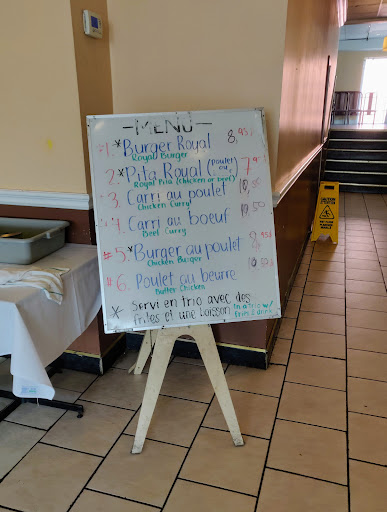 -MENU-
#1. *Burger Royal 8,95$
Royal Burger
2. *Pita Royal (poulet ou
Royal Pita (chicken or beef)
3. Carri au poulet
Chicken Curry
4. Carri au boeuf 10,50
Beef Curry
#5. *Burger au poulet 8,95$
Chicken Burger
#6. Poulet au beurre 10,50$
Butter Chicken
* Servi en trio avec des
frites et une boisson in a trio w/
fries & drink
CAUTION